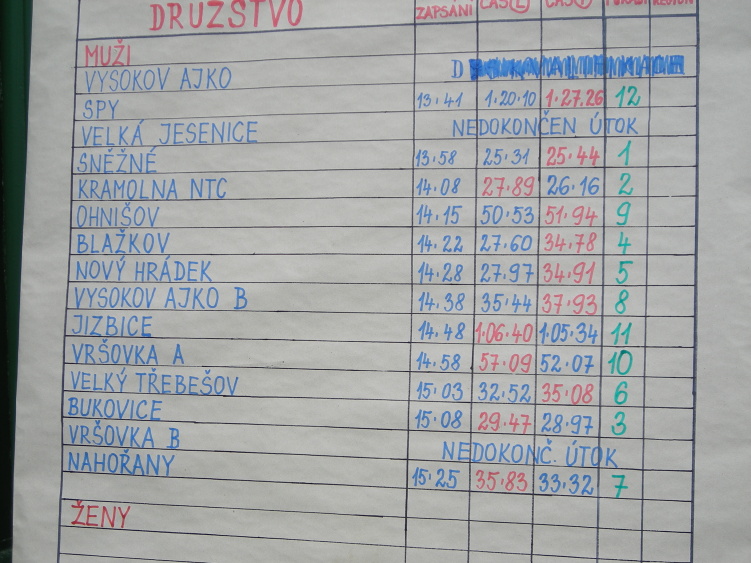 DRUŽSTVO ZAPSÁNÍ ČAS(L) ČAS(P)
MUŽI
VYSOKOV AJKO D
SPY 13.41 1.20.10 1.27.26 12
VELKÁ JESENICE NEDOKONČEN ÚTOK
SNĚŽNÉ 13.58 25.31 25.44 1
KRAMOLNA NTC 14.08 27.89 26.16 2
OHNIŠOV 14.15 50.53 51.94 9
BLAŽKOV 14.22 27.60 34.78 4
NOVÝ HRÁDEK 14.28 27.97 34.91 5
VYSOKOV AJKO B 14.38 35.44 37.93 8
JIZBICE 14.48 1.06.40 1.05.34 11
VRŠOVKA A 14.58 57.09 52.07 10
VELKÝ TŘEBEŠOV 15.03 32.52 35.08 6
BUKOVICE 15.08 29.47 28.97 3
VRŠOVKA B NEDOKONČ. ÚTOK
NAHOŘANY 15.25 35.83 33.32 7
ŽENY